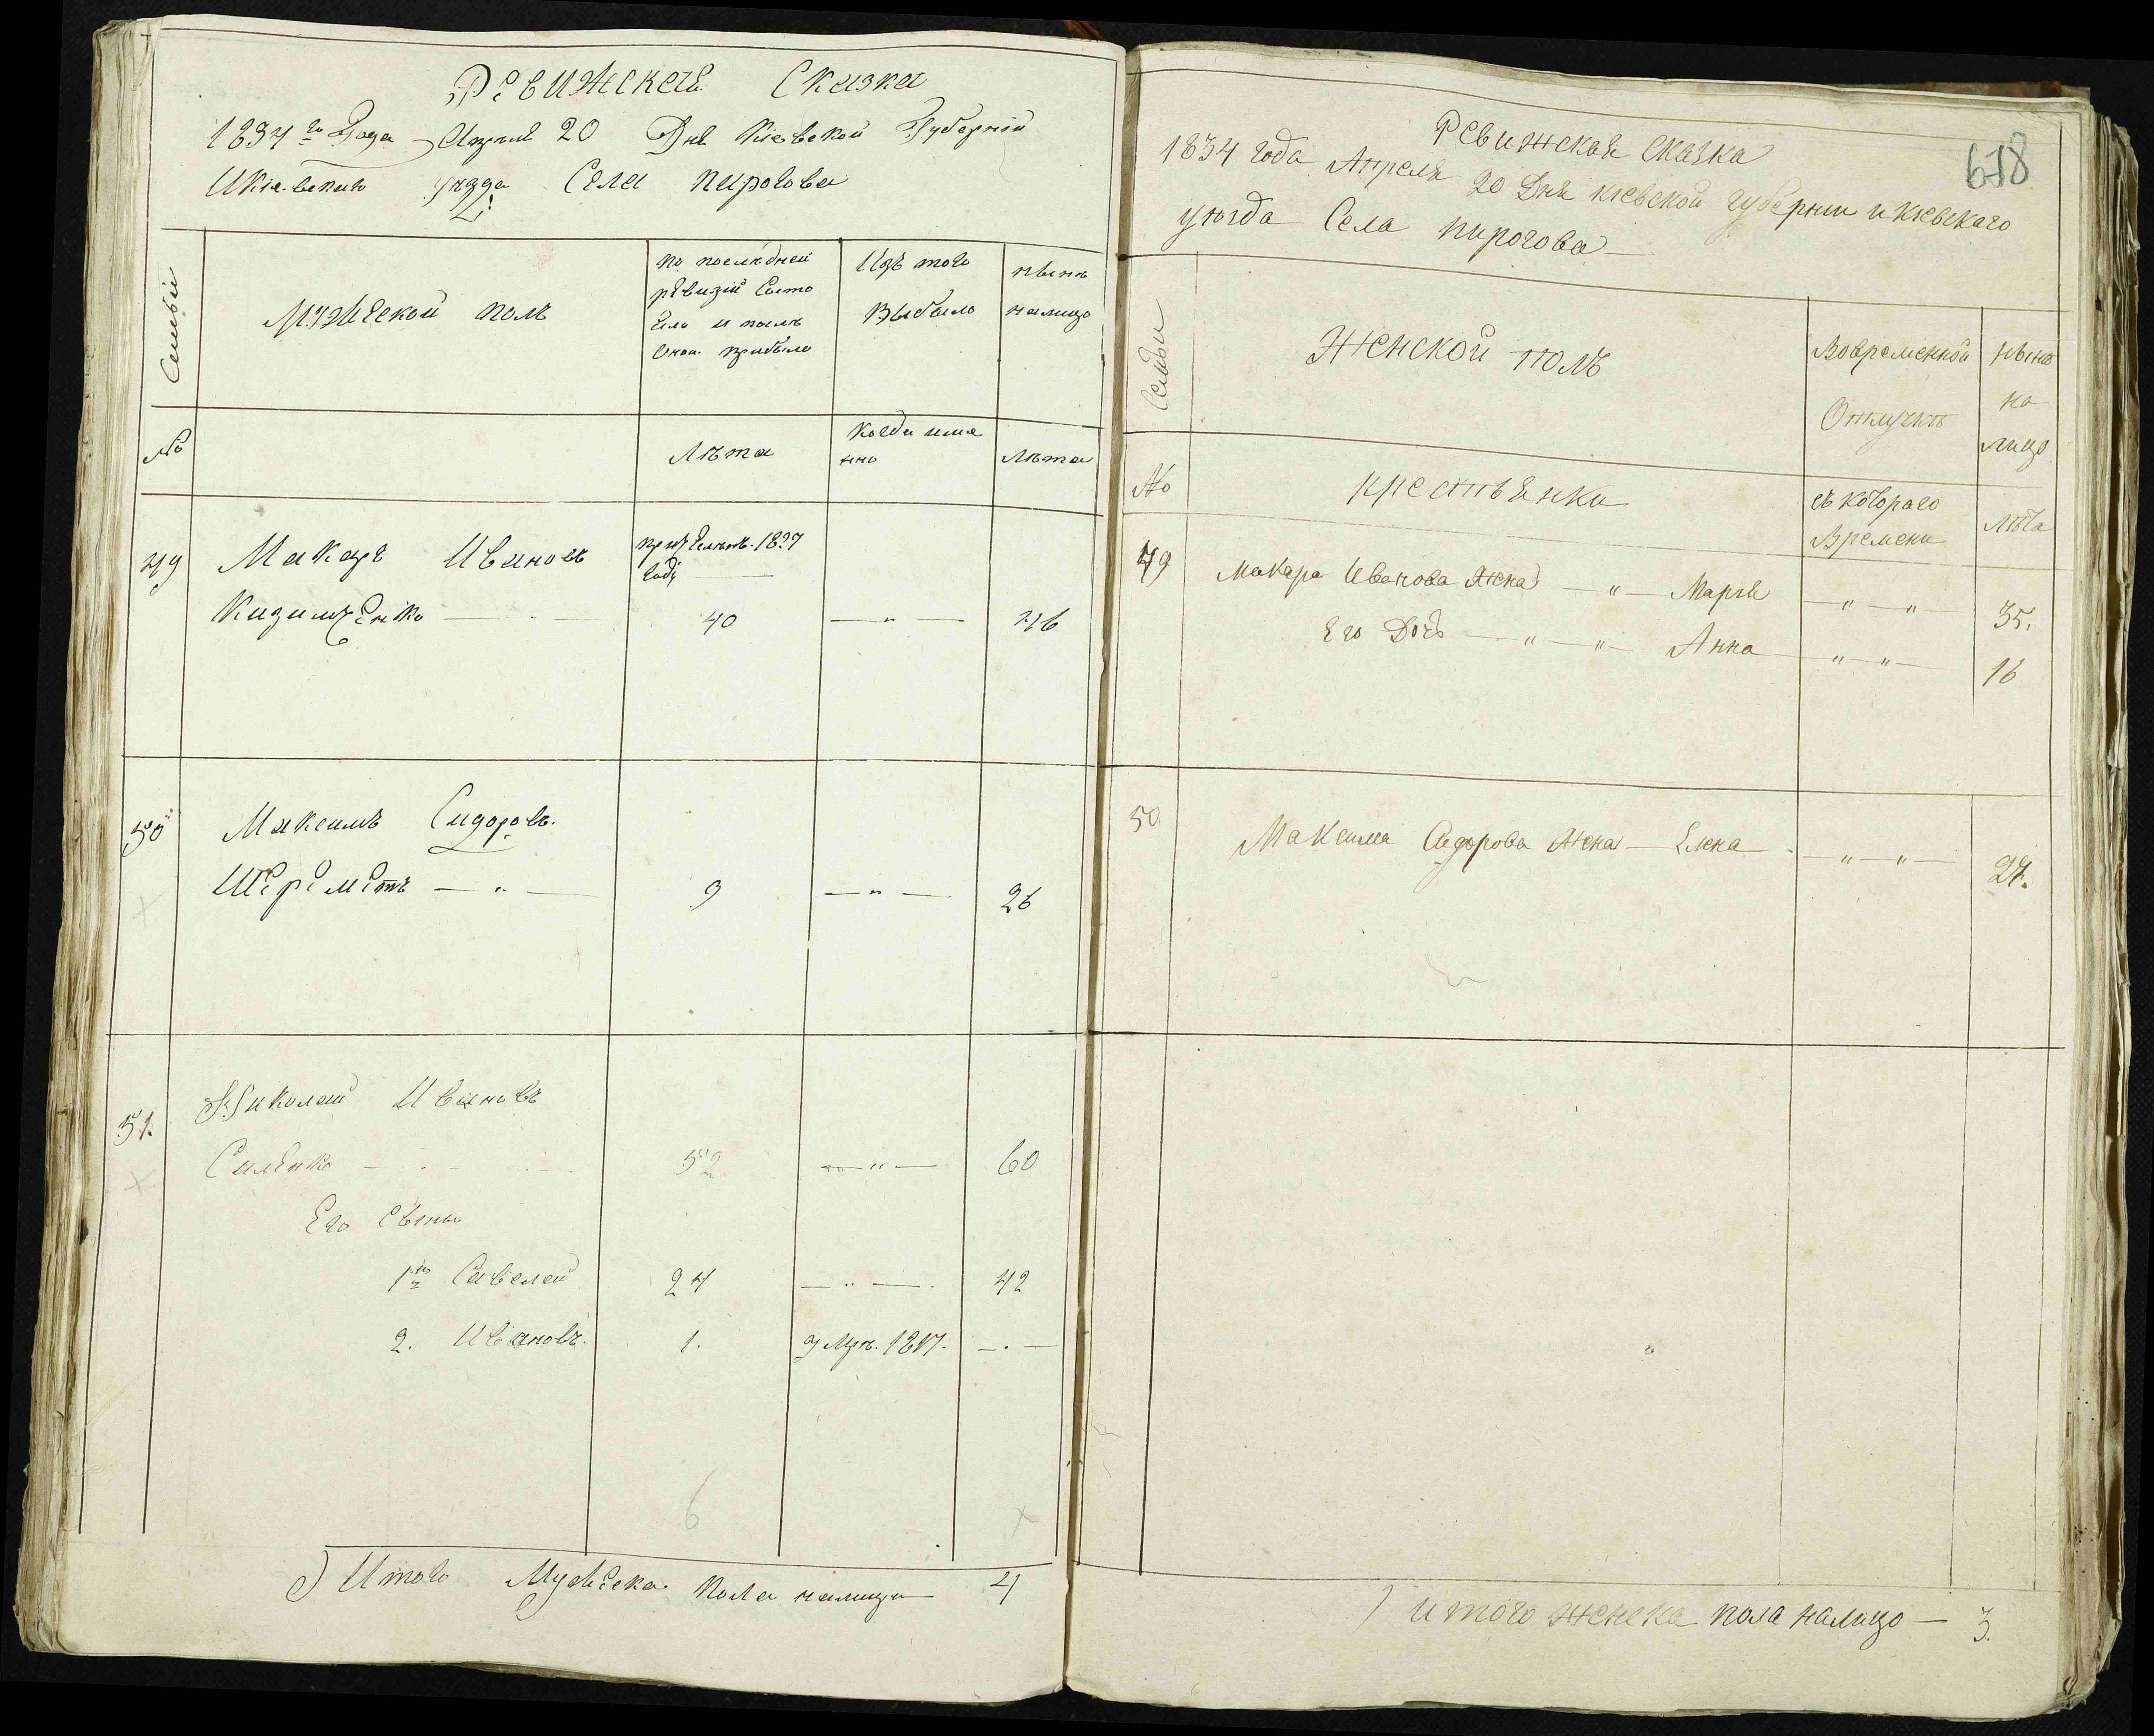 Ревижская Сказка
1834 го Года Апреля 20 Дня Кіевской Губерніи
И Кіевскаго уезда Села Пирогова
Семьи
Мужеской полъ
По последней
ревизіи Состо
яло и послѣ
Оной прибыло
Изъ того
Выбыло
нынѣ
налицо
№
Лѣта
Когда име
нно
Лѣта
49
Макаръ Ивановъ
1827
годѣ
40
46
50
Максимъ Сидоровъ.
Шереметъ
9
26
51.
Николай Ивановъ
Силенко
52
60
Его Сыны
1й Савелей
24
42
2. Ивановъ.
1.
1817.
6
Итого Мужеска пола налицо 4
Ревижская сказка
678
1834 года Апреля 20 Дня Кіевской губернии и Кіевскаго
уѣзда Села Пирогова
Семьи
Женской полъ
Вовременной
Отлучкѣ
нынѣ
на
лицо
№
крестьянки
съ котораго
Времени
лѣта
49
Макара Иванова Жена — " — Марія — " — " — 35.
Его Дочь — " — " — Анна — " — " — 16
50
Максима Сидорова Жена — Елена — " — " — 27.
итого женска пола налицо — 3.